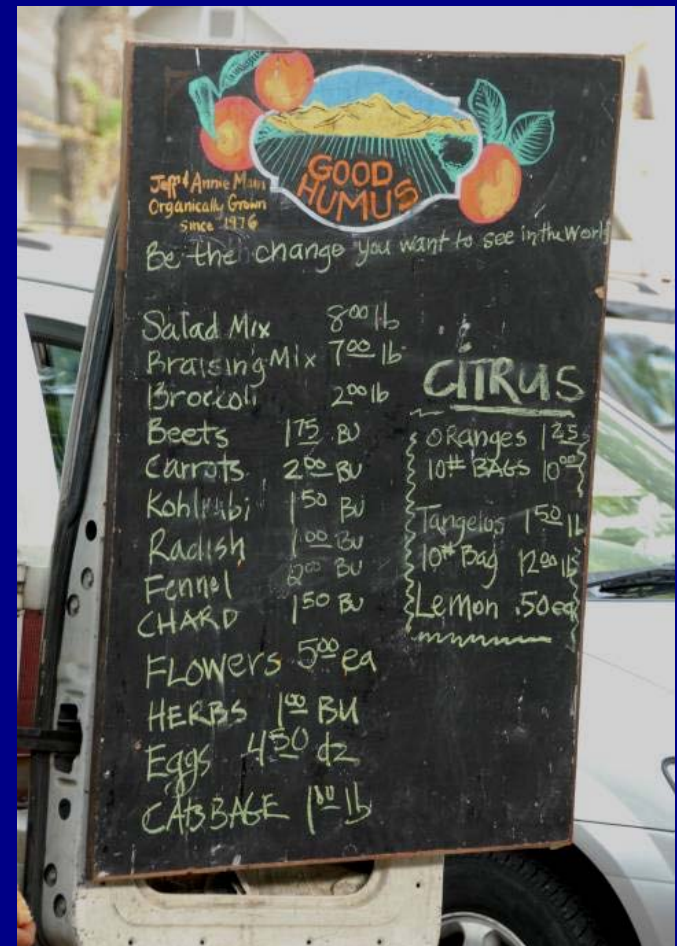 GOOD
HUMUS
Jeff & Annie Main
Organically Grown
since 1976
Be the change you want to see in the World
Salad Mix 8.00 lb
Braising Mix 7.00 lb
Broccoli 2.00 lb
Beets 1.75 BU
Carrots 2.00 BU
Kohlrabi 1.50 BU
Radish 1.00 BU
Fennel 2.00 BU
CHARD 1.50 BU
FLOWERS 5.00 ea
HERBS 1.00 BU
Eggs 4.50 dz
CABBAGE 1.00 lb
CITRUS
ORanges 1.25
10# BAGS 10.00
Tangelos 1.50 lb
10# Bag 12.00 lb
Lemon .50 ea